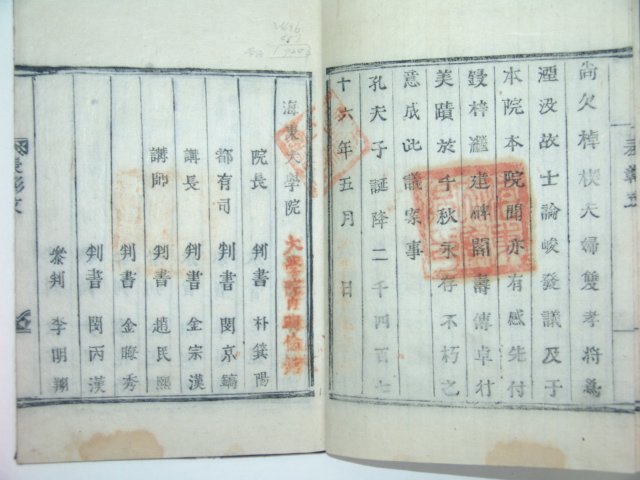 尙欠棹楔夫婦雙孝將爲
湮没故士論峻發議及于
本院本院聞亦有感先付
鋟梓繼建碑閣壽傳卓行
美蹟於千秋永存不朽之
意成此議案事
孔夫子誕降二千四百七
十六年五月 日
海東大學院
院長 判書 朴箕陽
都有司 判書 閔京鎬
講長 判書 金宗漢
講師 判書 趙民熙
判書 金晦秀
判書 閔丙漢
參判 李明翔